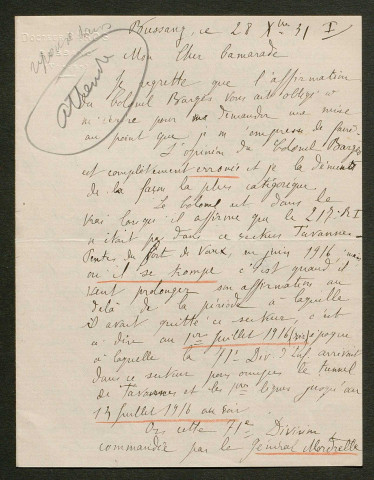 Bussang, le 28 Xbre 31 I
réponse dans
attendre
Mon Cher Camarade
Je regrette que l'affirmation
du Colonel Barges vous ait obligé
m'écrire pour me demander une mise
au point que je m'empresse de faire.
L'opinion du Colonel Barges
est complètement erronée et je la démente
de la façon la plus catégorique
Le Colonel est dans le
vrai lorsqu'il affirme que le 217e RI
n'était pas dans ce secteur Tavannes-
Pentes du fort de Vaux, en juin 1916 mais
où il se trompe c'est quand il
veut prolonger son affirmation au
delà de la période à laquelle
il avait quitté ce secteur, c'est
à dire au 1er juillet 1916 époque
à laquelle la 71e Div. d'Inf. arrivait
dans ce secteur pour occuper le tunnel
de Tavannes et les 1ères lignes jusqu'au
13 juillet 1916 au soir
Or cette 71e Division
commandée par le général Mordrelle